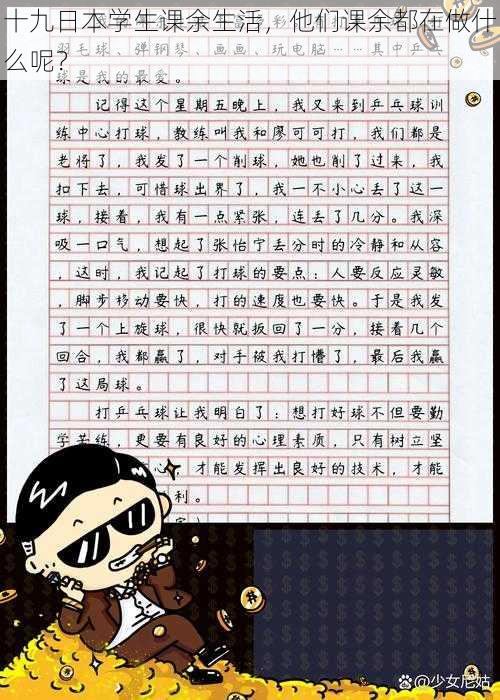 十九日本学生课余生活，他们课余都在做什
么呢？
羽毛球、弹钢琴、画画、玩电脑……其中乒乓
球是我的最爱。
记得这个星期五晚上，我又来到乒乓球训
练中心打球，教练叫我和廖可可打，我们都是
老将了，我发了一个削球，她也削了过来，我
扣下去，可惜球出界了，我一不小心丢了这一
球，接着，我有一点紧张，连丢了几分。我深
吸一口气，想起了张怡宁丢分时的冷静和从容
，这时，我记起了打球的要点：人要反应灵敏
，脚步移动要快，打的速度也要快。于是我发
了一个上旋球，很快就扳回了一分，接着几个
回合，我都赢了，对手被我打懵了，最后我赢
了这局球。
打乒乓球让我明白了：想打好球不但要勤
学苦练，更要有良好的心理素质，只有树立坚
心，才能发挥出良好的技术，才能
利。
@少女尼姑